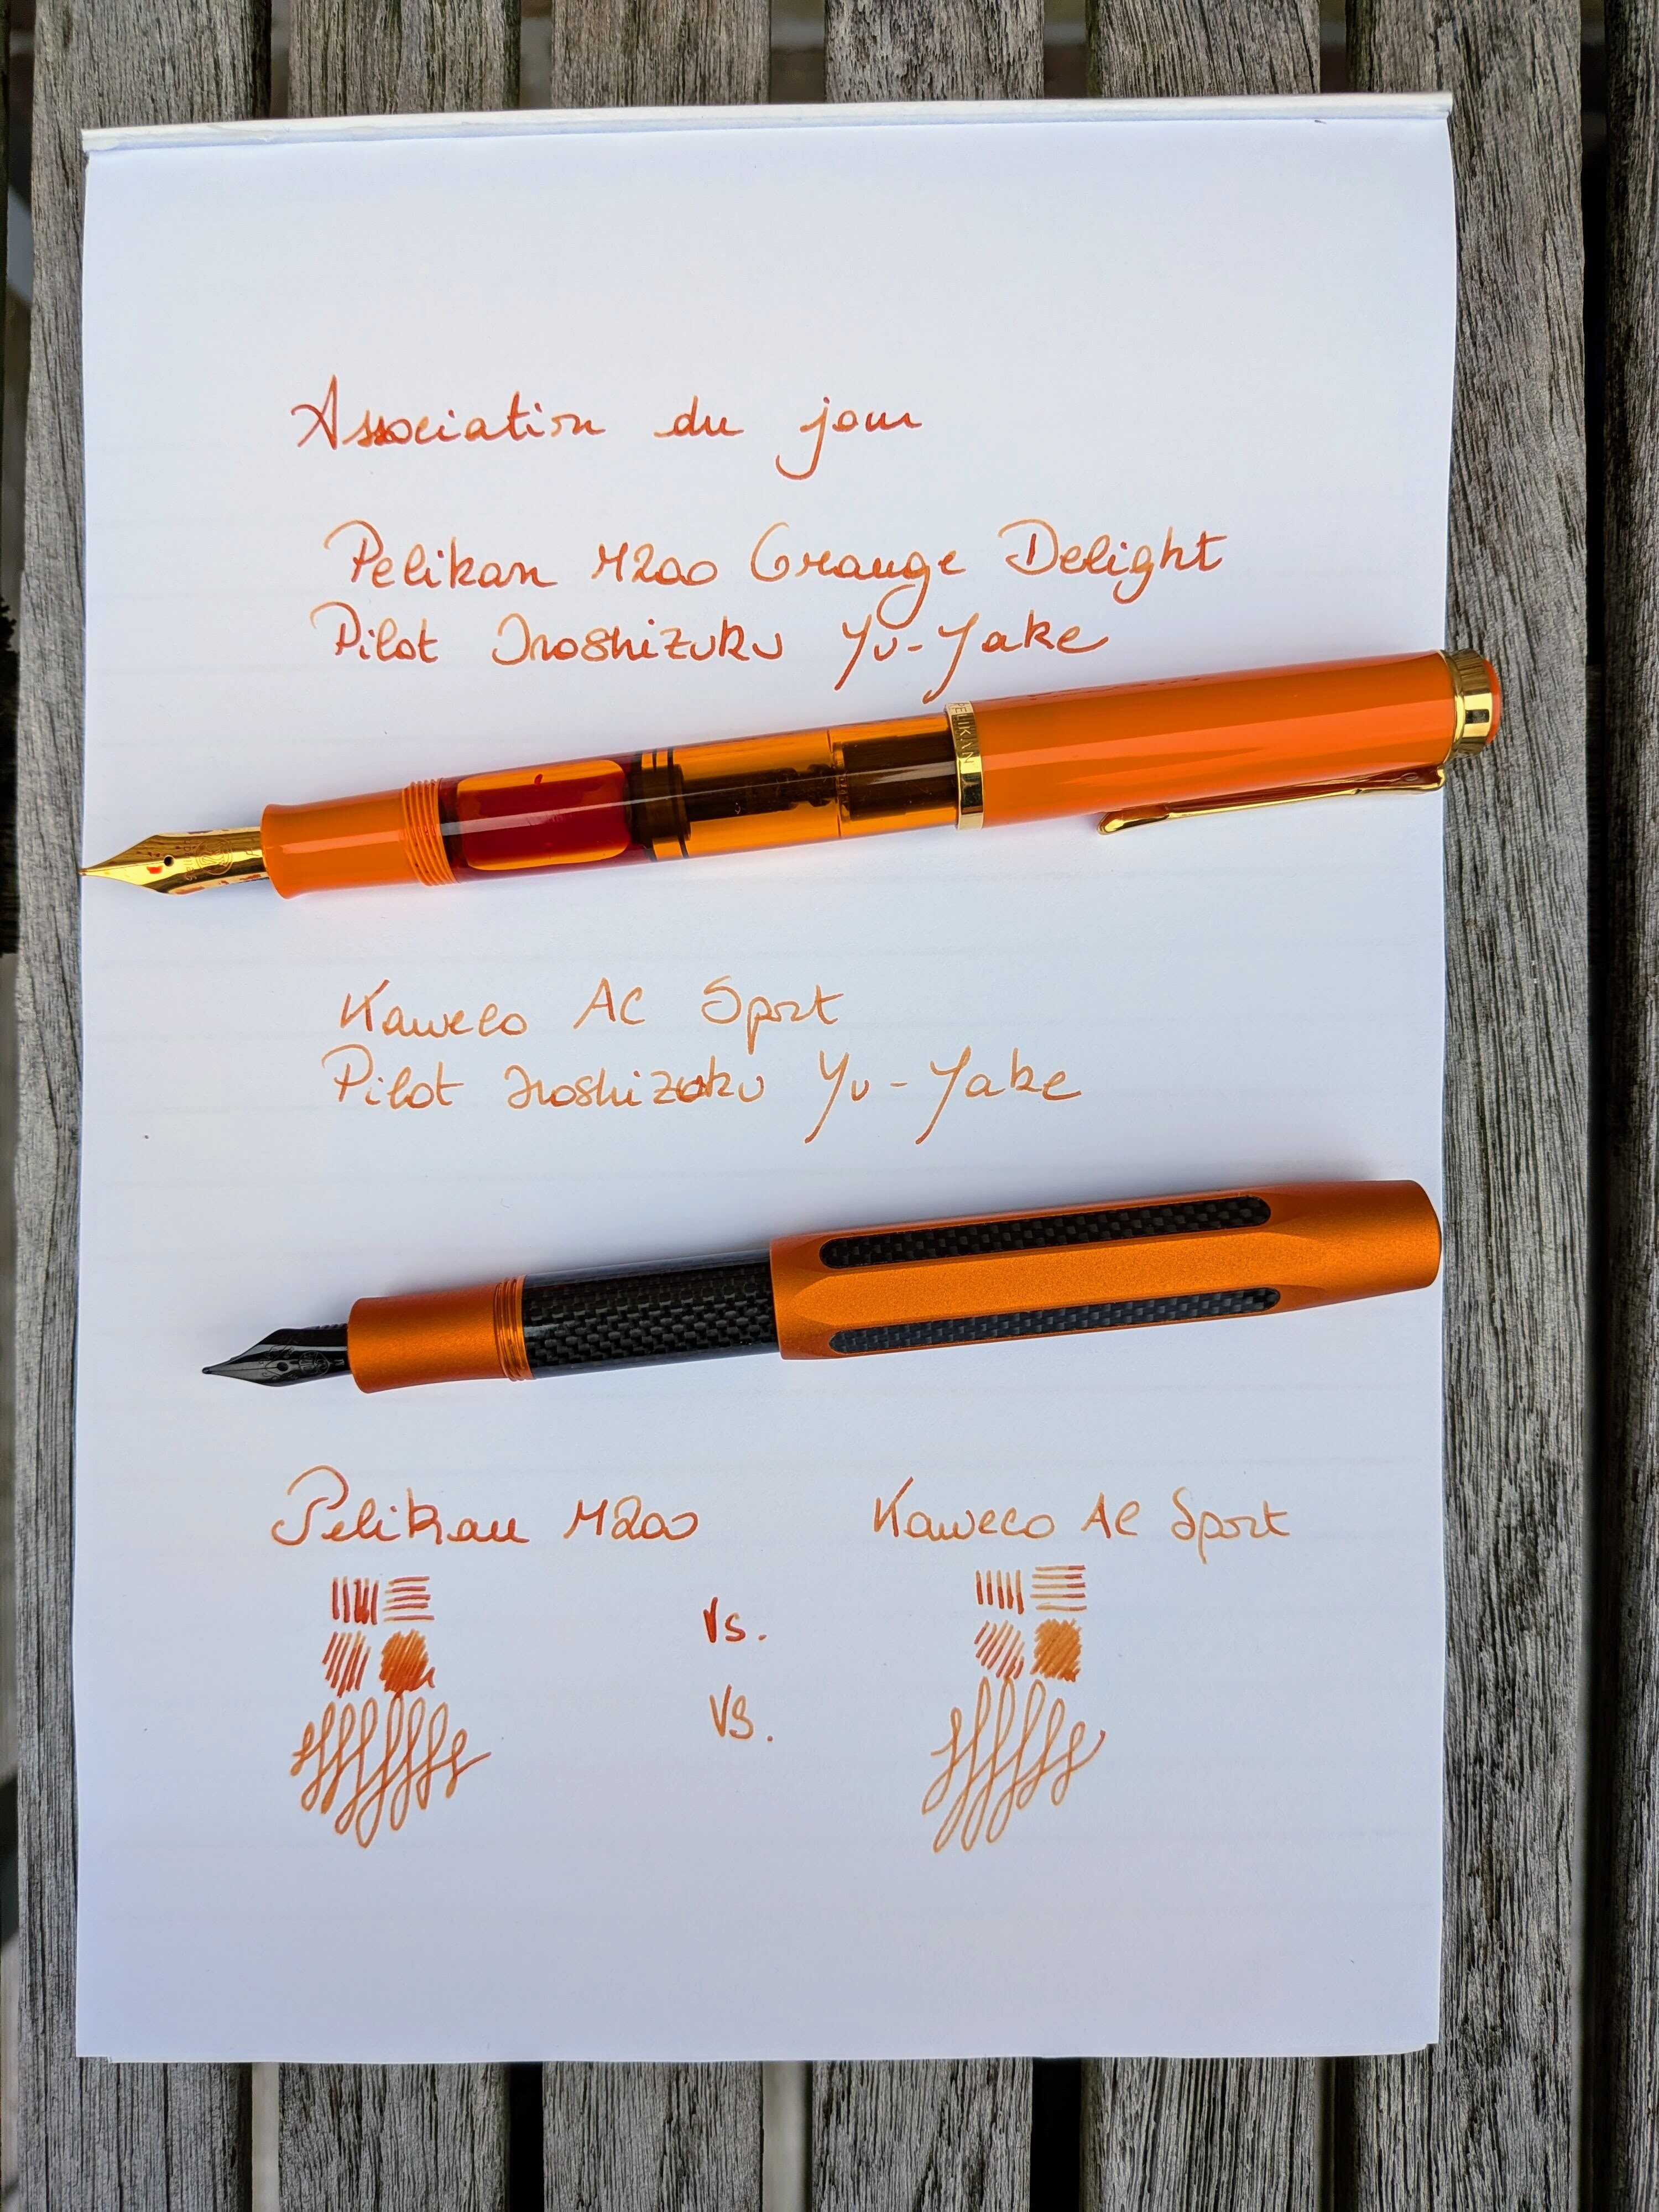 Association du jour
Pelikan M200 Orange Delight
Pilot Iroshizuku Yu-Yake
PELIKAN
Kaweco AC Sport
Pilot Iroshizuku Yu-Yake
Pelikan M200
Kaweco AC Sport
Vs.
VS.